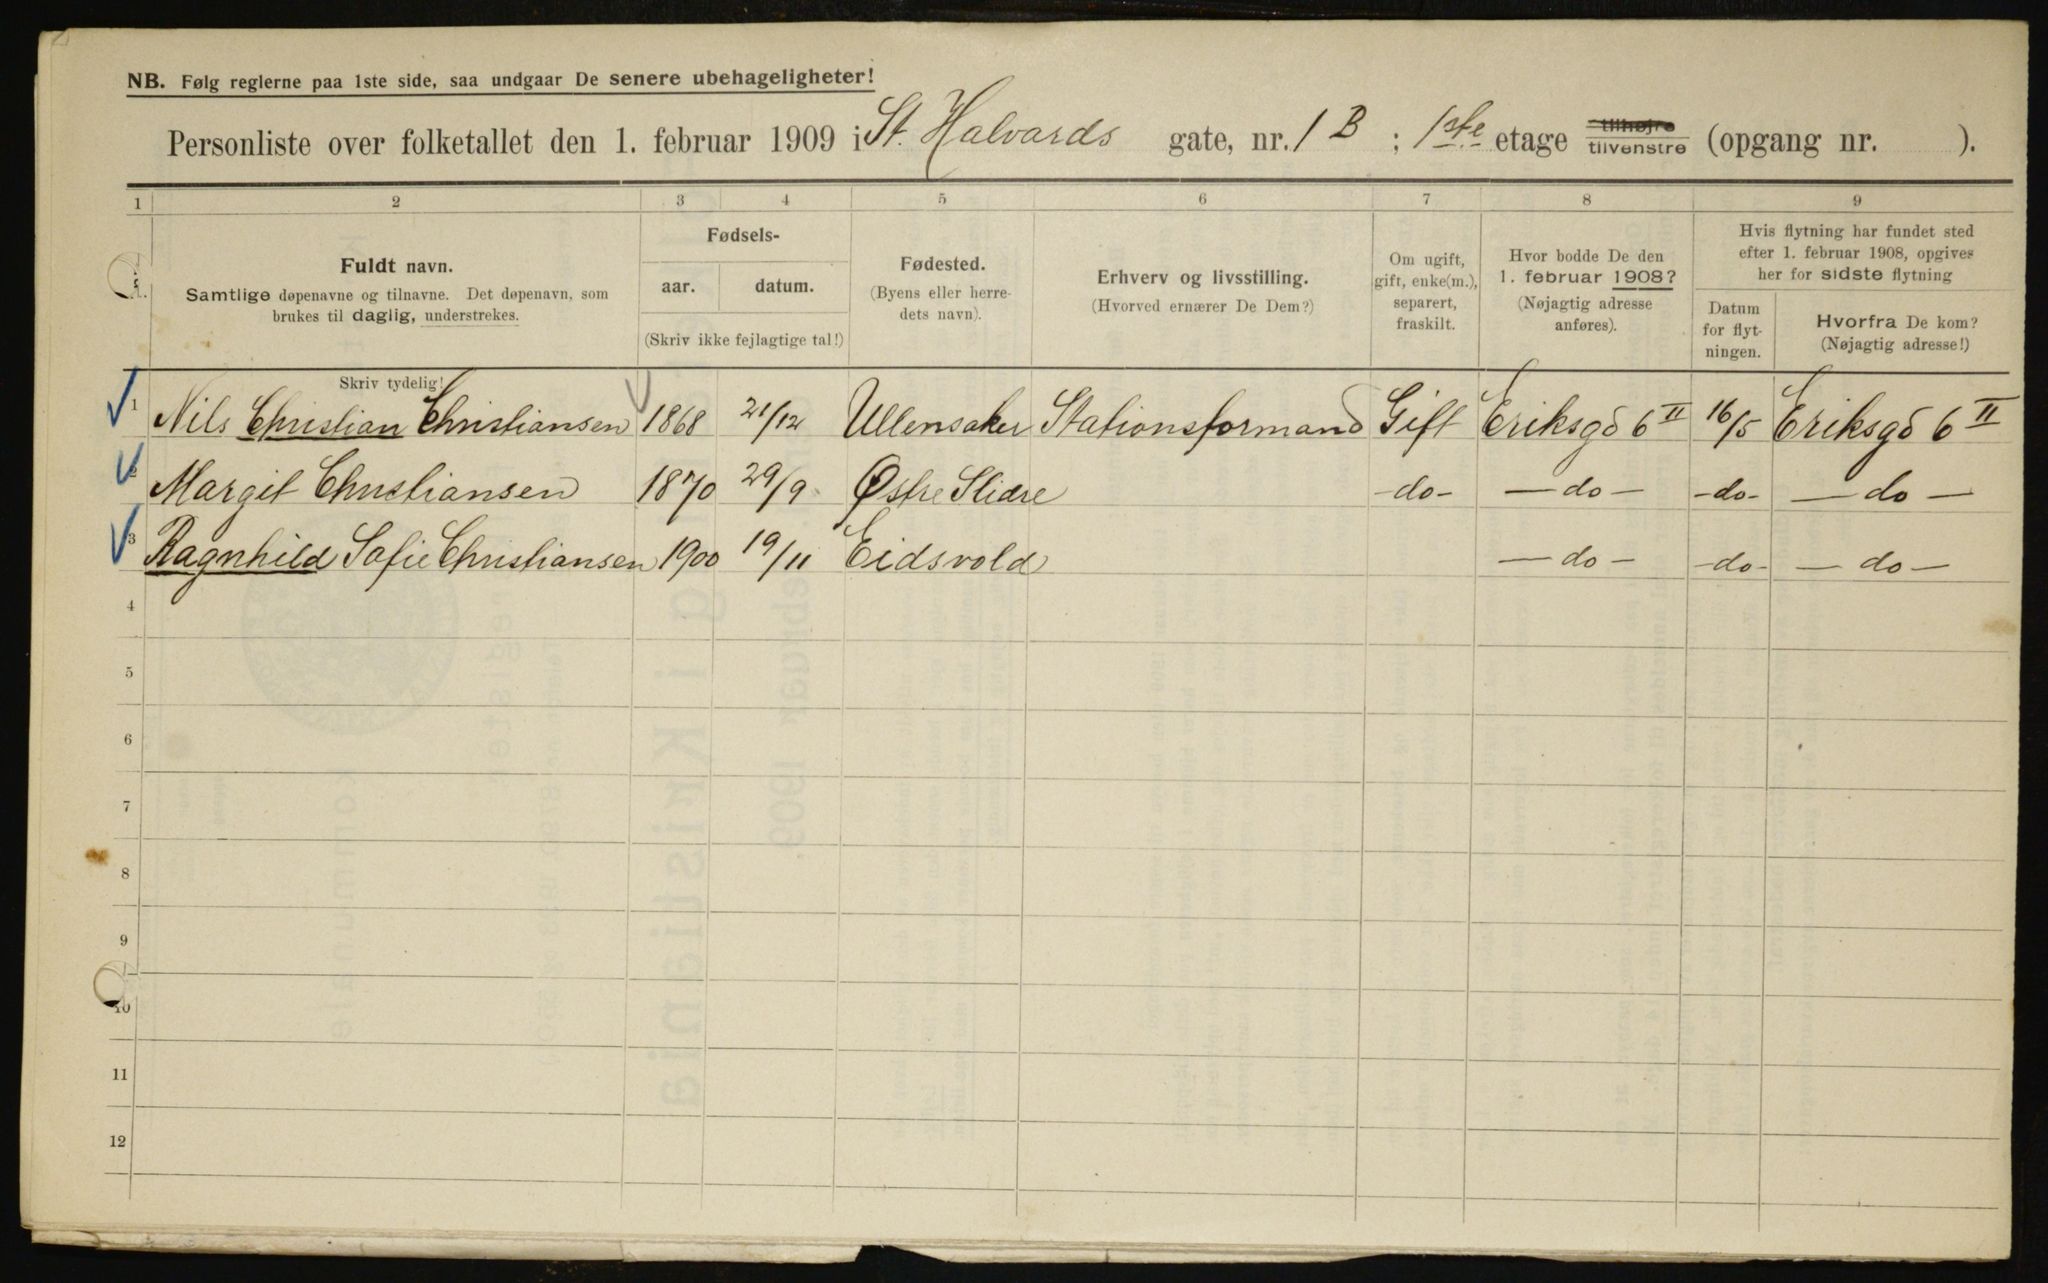 NB. Følg reglerne paa 1ste side, saa undgaar De senere ubehageligheter!
Personliste over folketallet den 1. februar 1909 i St. Halvards gate, nr. 1 B ; 1ste etage tilhøjre tilvenstre (opgang nr. ).
1 2 3 4 5 6 7 8 9
Fuldt navn.
Samtlige døpenavne og tilnavne. Det døpenavn, som
brukes til daglig, understrekes.
Fødsels-
aar. datum.
(Skriv ikke fejlagtige tal!)
Fødested.
(Byens eller herre-
dets navn).
Erhverv og livsstilling.
(Hvorved ernærer De Dem?)
Om ugift,
gift, enke(m.),
separert,
fraskilt.
Hvor bodde De den
1. februar 1908?
(Nøjagtig adresse
anføres).
Hvis flytning har fundet sted
efter 1. februar 1908, opgives
her for sidste flytning
Datum
for flyt-
ningen.
Hvorfra De kom?
(Nøjagtig adresse!)
Skriv tydelig!
1 Nils Christian Christiansen 1868 21/12 Ullensaker Stationsformand Gift Eriksgd 6 II 16/5 Eriksgd 6 II
2 Margit Christiansen 1870 29/9 Østre Slidre -do- -do- -do- -do-
3 Ragnhild Sofie Christiansen 1900 19/11 Eidsvold -do- -do- -do-
4
5
6
7
8
9
10
11
12